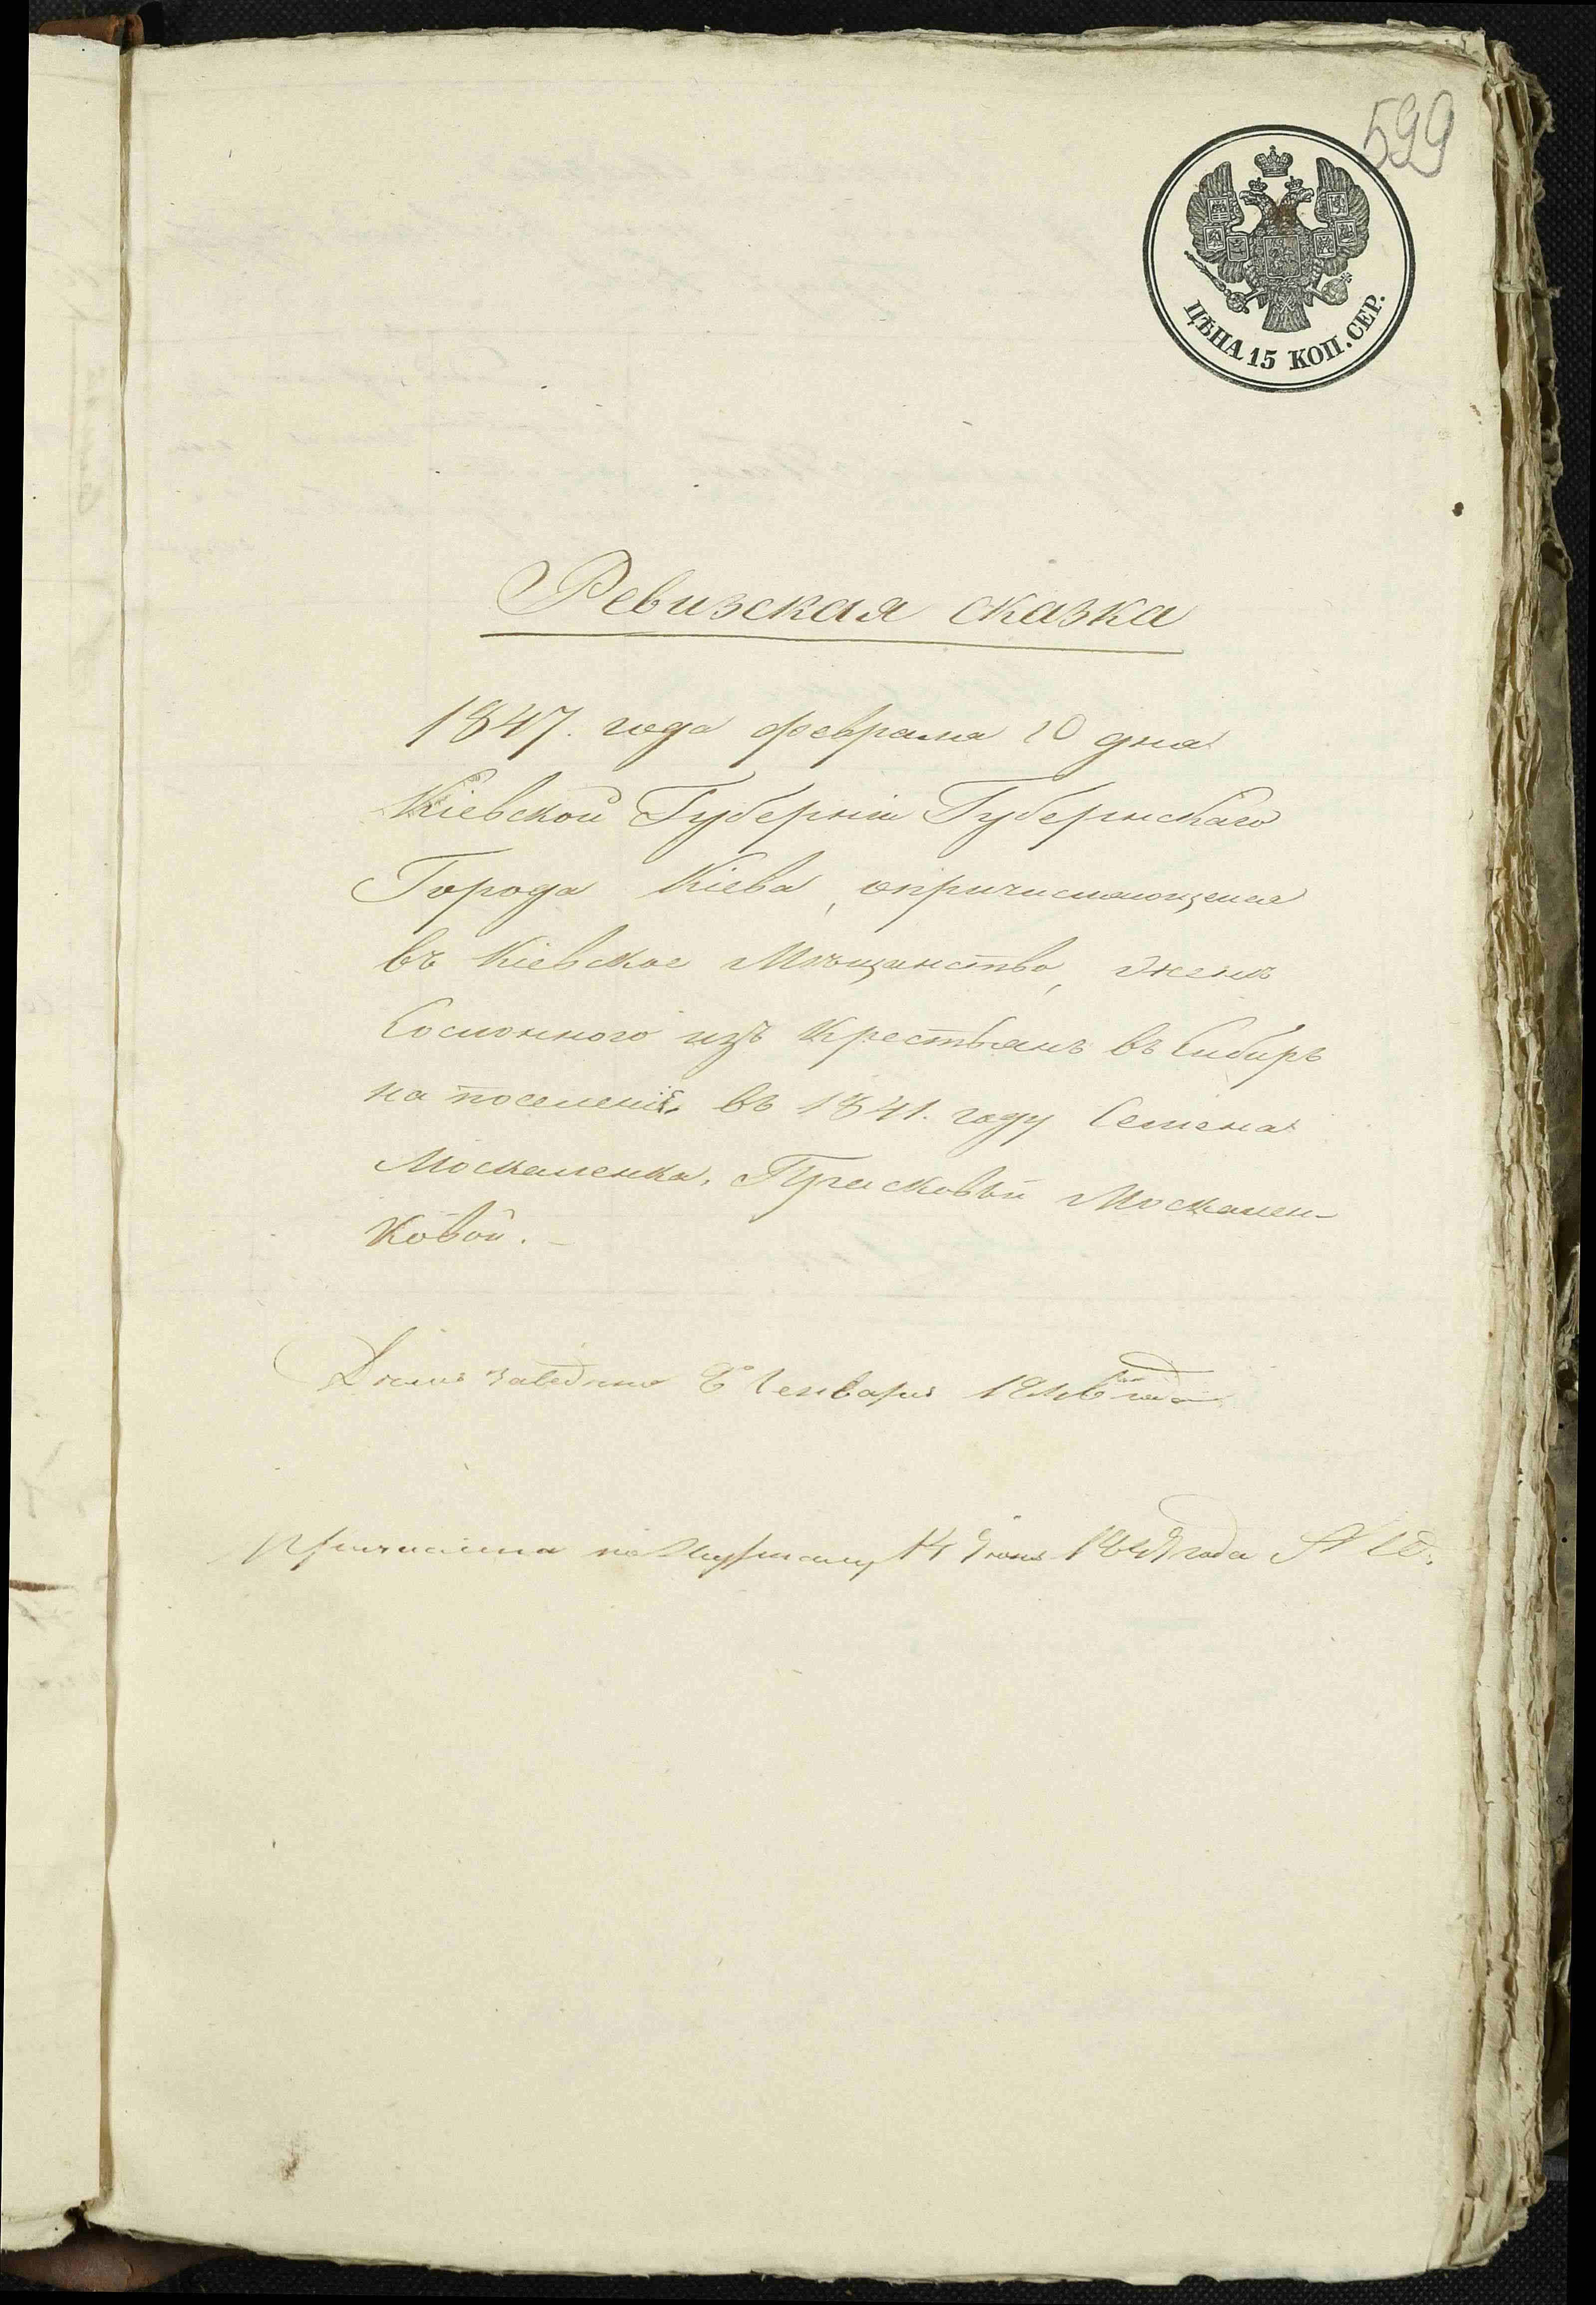 599
ЦѢНА 15 КОП. СЕР.
Ревизская сказка
1847. года февраля 20 дня
Кіевской Губерніи Губернскаго
Города Кіева, опричисляющейся
въ Кіевское Мѣщанство, женѣ
Сосланного изъ Крестьянъ въ Сибирь
на поселеніе въ 1841. году Семена
Москаленка, Прасковьи Москален-
ковой. –
Дѣло заведено 8 Генваря 1846 года
Причислена по Журналу 14 Іюня 184 года №